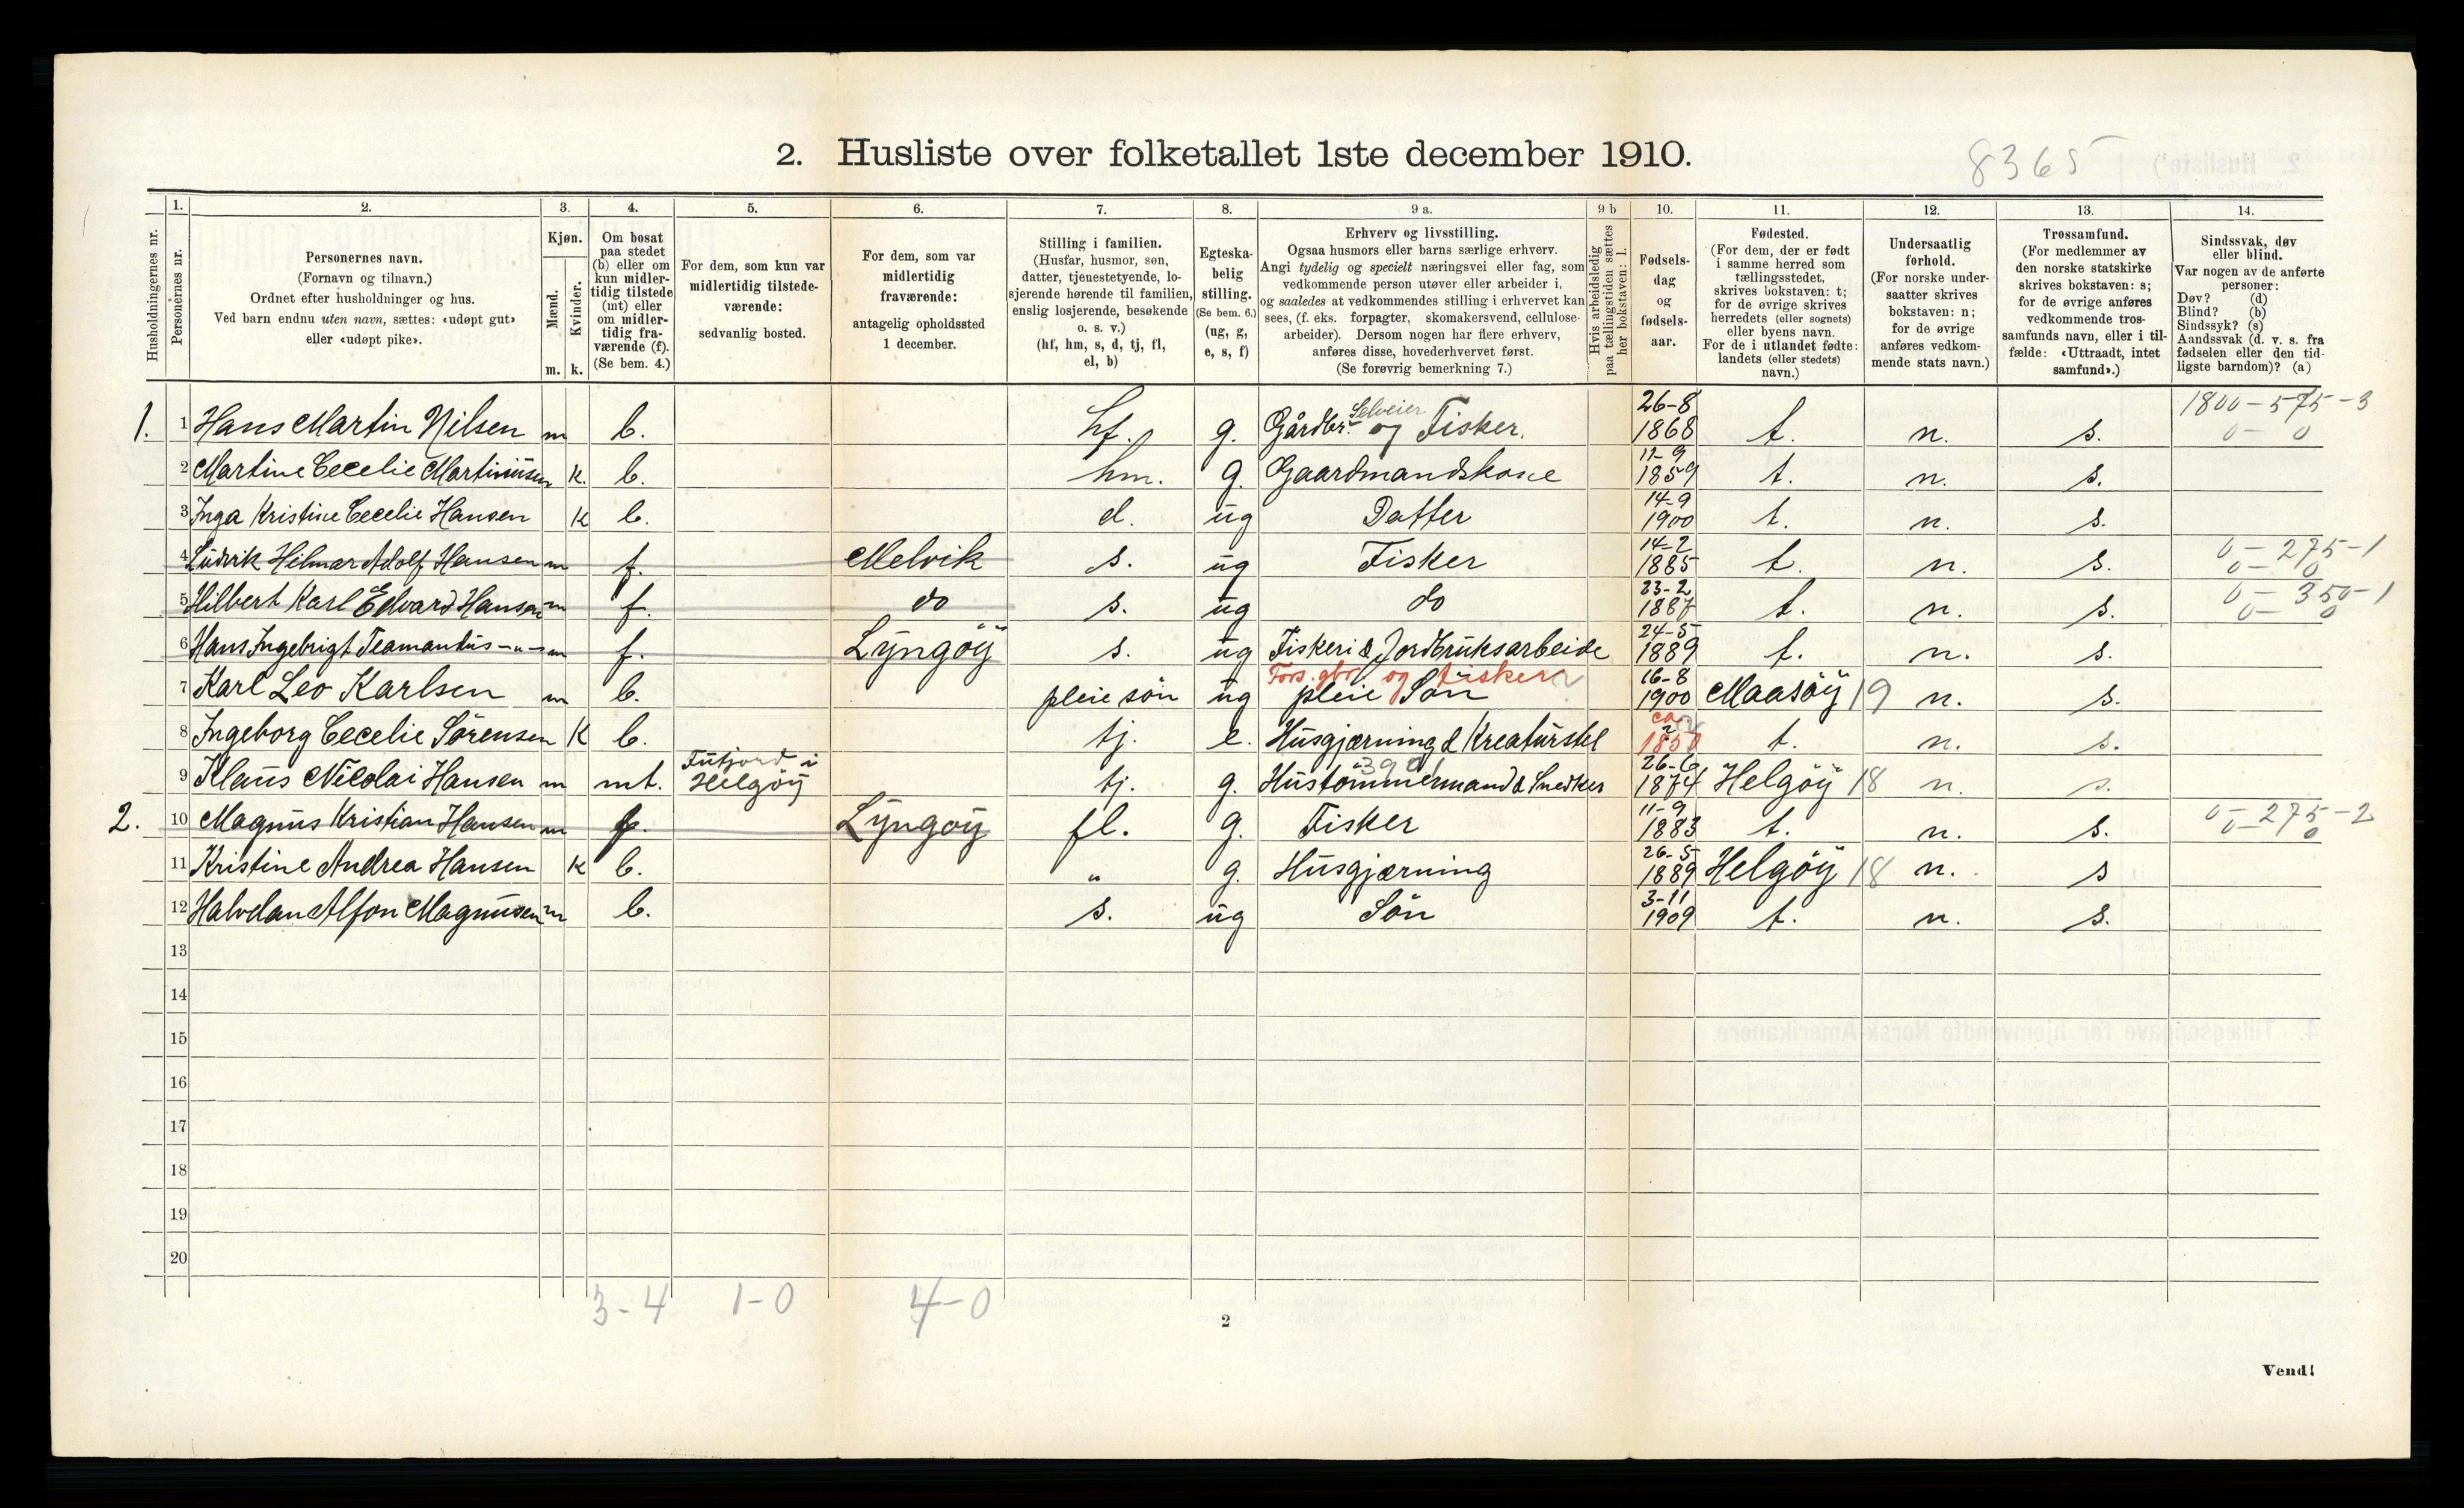 2. Husliste over folketallet 1ste december 1910.
8365
1. 2. 3. 4. 5. 6. 7. 8. 9 a. 9 b 10. 11. 12. 13. 14.
Husholdningernes nr.
Personernes nr.
Personernes navn.
(Fornavn og tilnavn.)
Ordnet efter husholdninger og hus.
Ved barn endnu uten navn, sættes: «udøpt gut»
eller «udøpt pike».
Kjøn.
Mænd.
Kvinder.
m. k.
Om bosat
paa stedet
(b) eller om
kun midler-
tidig tilstede
(mt) eller
om midler-
tidig fra-
værende (f).
(Se bem. 4.)
For dem, som kun var
midlertidig tilstede-
værende:
sedvanlig bosted.
For dem, som var
midlertidig
fraværende:
antagelig opholdssted
1 december.
Stilling i familien.
(Husfar, husmor, søn,
datter, tjenestetyende, lo-
sjerende hørende til familien,
enslig losjerende, besøkende
o. s. v.)
(hf, hm, s, d, tj, fl,
el, b)
Egteska-
belig
stilling.
(Se bem. 6.)
(ug, g,
e, s, f)
Erhverv og livsstilling.
Ogsaa husmors eller barns særlige erhverv.
Angi tydelig og specielt næringsvei eller fag, som
vedkommende person utøver eller arbeider i,
og saaledes at vedkommendes stilling i erhvervet kan
sees, (f. eks. forpagter, skomakersvend, cellulose-
arbeider). Dersom nogen har flere erhverv,
anføres disse, hovederhvervet først.
(Se forøvrig bemerkning 7.)
Hvis arbeidsledig
paa tællingstiden sættes
her bokstaven: l.
Fødsels-
dag
og
fødsels-
aar.
Fødested.
(For dem, der er født
i samme herred som
tællingsstedet,
skrives bokstaven: t;
for de øvrige skrives
herredets (eller sognets)
eller byens navn.
For de i utlandet fødte:
landets (eller stedets)
navn.)
Undersaatlig
forhold.
(For norske under-
saatter skrives
bokstaven: n;
for de øvrige
anføres vedkom-
mende stats navn.)
Trossamfund.
(For medlemmer av
den norske statskirke
skrives bokstaven: s;
for de øvrige anføres
vedkommende tros-
samfunds navn, eller i til-
fælde: «Uttraadt, intet
samfund».)
Sindssvak, døv
eller blind.
Var nogen av de anførte
personer:
Døv? (d)
Blind? (b)
Sindssyk? (s)
Aandssvak (d. v. s. fra
fødselen eller den tid-
ligste barndom)? (a)
1. 1 Hans Martin Nilsen m b. hf. g. Gårdbr. Selveier og Fisker. 26-8 1868 t. n. s. 1800-575-3 0- 0
2 Martine Cecelie Martiniusen k. b. hm. g. Gaardmandskone 11-9 1859 t. n. s.
3 Inga Kristine Cecelie Hansen k b. d. ug Datter 14-9 1900 t. n. s.
4 Ludvik Hilmar Adolf Hansen m f. Melvik s. ug Fisker 14-2 1885 t. n. s. 0-275-1 0- 0
5 Hilbert Karl Edvard Hansen m f. do s. ug do 23-2 1887 t. n. s. 0-350-1 0- 0
6 Hans Ingebrigt Teamandus -"- m f. Lyngöy s. ug Fiskeri & Jordbruksarbeide 24-5 1889 t. n. s.
7 Karl Leo Karlsen m b. pleie sön ug Fors. gbr. og fisker pleie Sön 16-8 1900 Maasöy 19 n. s.
8 Ingeborg Cecelie Sörensen K b. tj. e. Husgjærning & Kreaturstel ca 1850 t. n. s.
9 Klaus Nicolai Hansen m mt. Futfjord i Helgöy tj. g. Hustömmermand & Snedker 26-6 1874 Helgöy 18 n. s.
2. 10 Magnus Kristian Hansen m f. Lyngöy fl. g. Fisker 11-9 1883 t. n. s. 0-275-2 0- 0
11 Kristine Andrea Hansen k b. " g. Husgjærning 26-5 1889 Helgöy 18 n. s
12 Halvdan Alfon Magnusen m b. s. ug Sön 3-11 1909 t. n. s.
13
14
15
16
17
18
19
20
3-4 1-0 4-0
2
Vend!